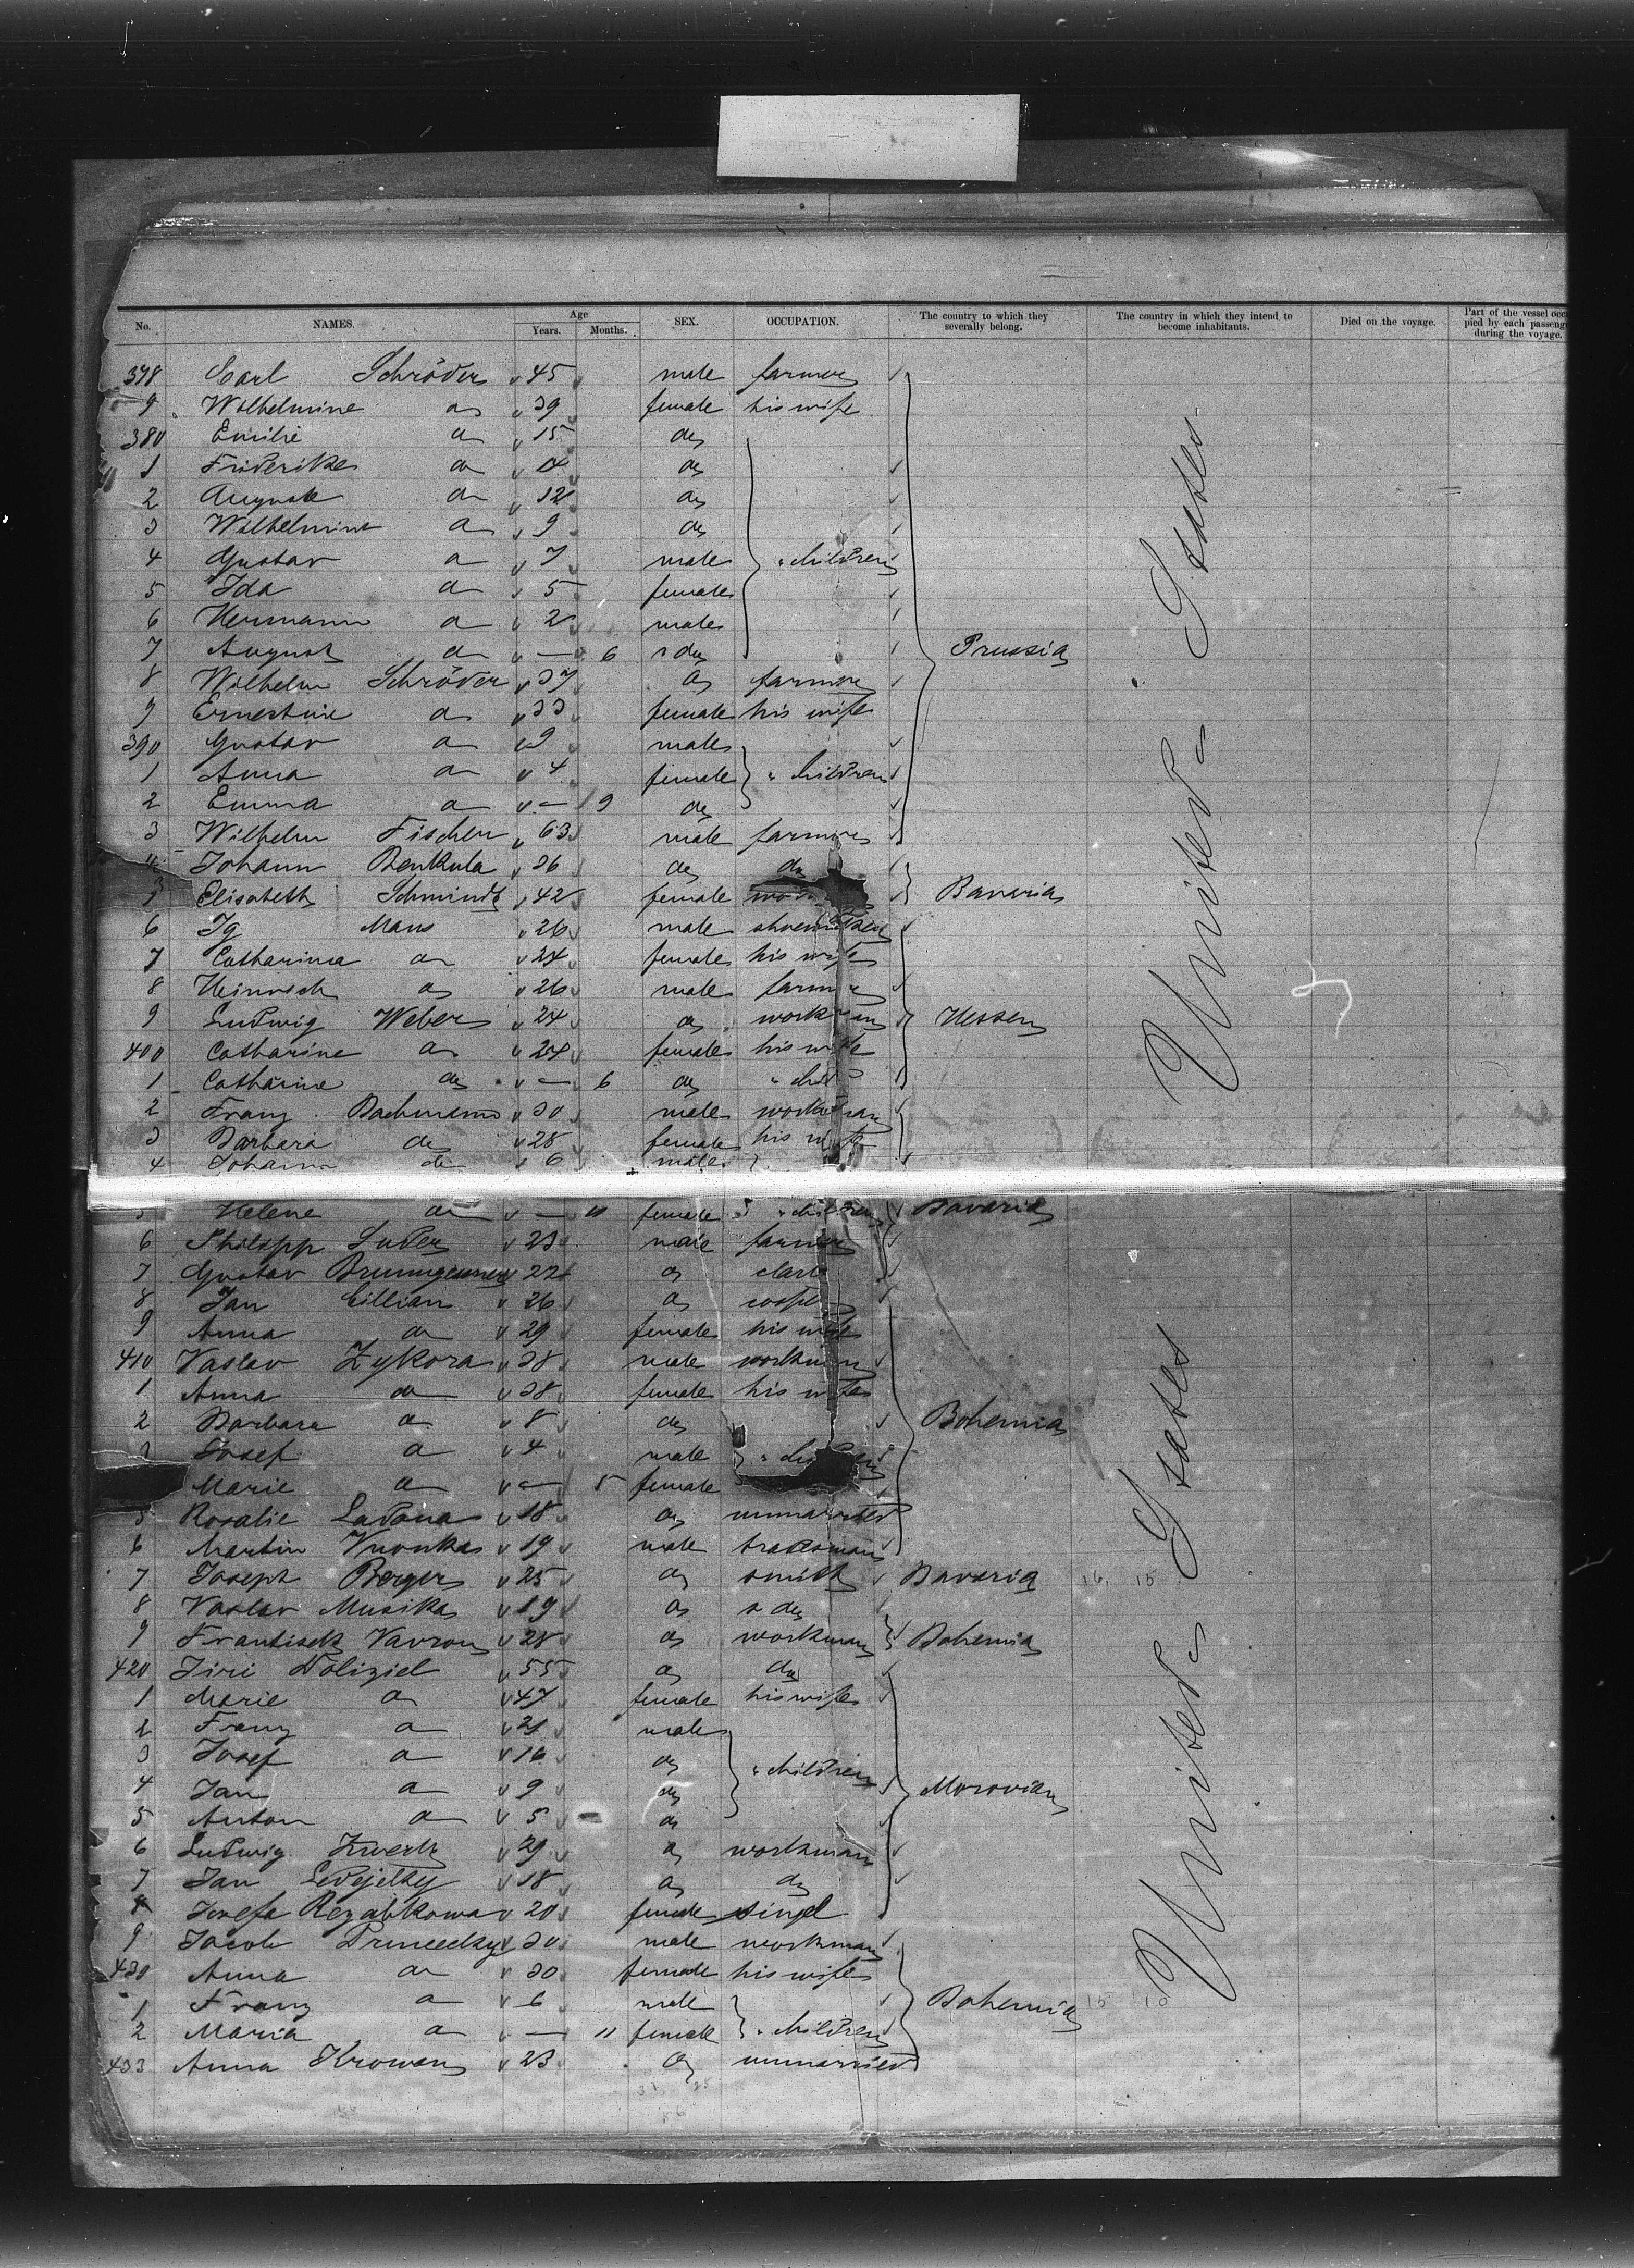 No. NAMES. Age Years. Months. SEX. OCCUPATION. The country to which they severally belong. The country in which they intend to become inhabitants. Died on the voyage. Part of the vessel occu pied by each passeng during the voyage.
378 Carl Schröder 45 male farmer
9 Wilhelmine do 39 female his wife
380 Emilie do 15 do
1 Friderike do do
2 Auguste do 12 do
3 Wilhelmine do 9 do
4 Gustav do 7 male children
5 Ida do 5 female
6 Hermann do 2 male
7 August do — 6 do Prussia
8 Wilhelm Schröder 37 do farmer
9 Ernestine do 33 female his wife
390 Gustav do 9 male
1 Anna do 4 female children
2 Emma do — 9 do
3 Wilhelm Fischer 63 male farmer
4 Johann Benkula 36 do do
Elisabeth Schmindt 42 female Bavaria
6 Jg Mans 26 male shoemaker
7 Catharina do 24 female his wife
8 Heinrich do 26 male farmer
9 Ludwig Weber 24 do workman Hessen
400 Catharine do 24 female his wife
1 Catharine do — 6 do child
2 Franz Bachmann 30 male workman
3 Barbara do 28 female his wife
4 Johann do 6 male
United States
5 Helene do — 11 female children Bavaria
6 Philipp Luder 23 male farmer
7 Gustav 22 do clark
8 Jan Cillian 26 do
9 Anna do 29 female his wife
410 Vaslav Zykora 38 male workman
1 Anna do 38 female his wife
2 Barbara do 8 do Bohemia
3 Josef do 4 male children
Marie do — 5 female
5 Rosalie Ladana 18 do unmarried
6 Martin Vuonka 19 male tradesman
7 Joseph Berger 25 do smith Bavaria 16. 15
8 Vaslav Musika 19 do do
9 Frantisek Vavron 28 do workman Bohemia
420 Jiri Doliziel 55 do do
1 Marie do 47 female his wife
2 Franz do 21 male
3 Josef do 16 do children
4 Jan do 9 do Moravian
5 Anton do 5 do
6 Ludwig Zwertz 29 do workman
7 Jan 18 do do
8 Josefa Rezabkowa 20 female singel
9 Jacob 30 male workman
430 Anna do 30 female his wife
1 Franz do 6 male Bohemia 15 10
2 Maria do — 11 female children
433 Anna Hrowan 23 do unmarried
United States